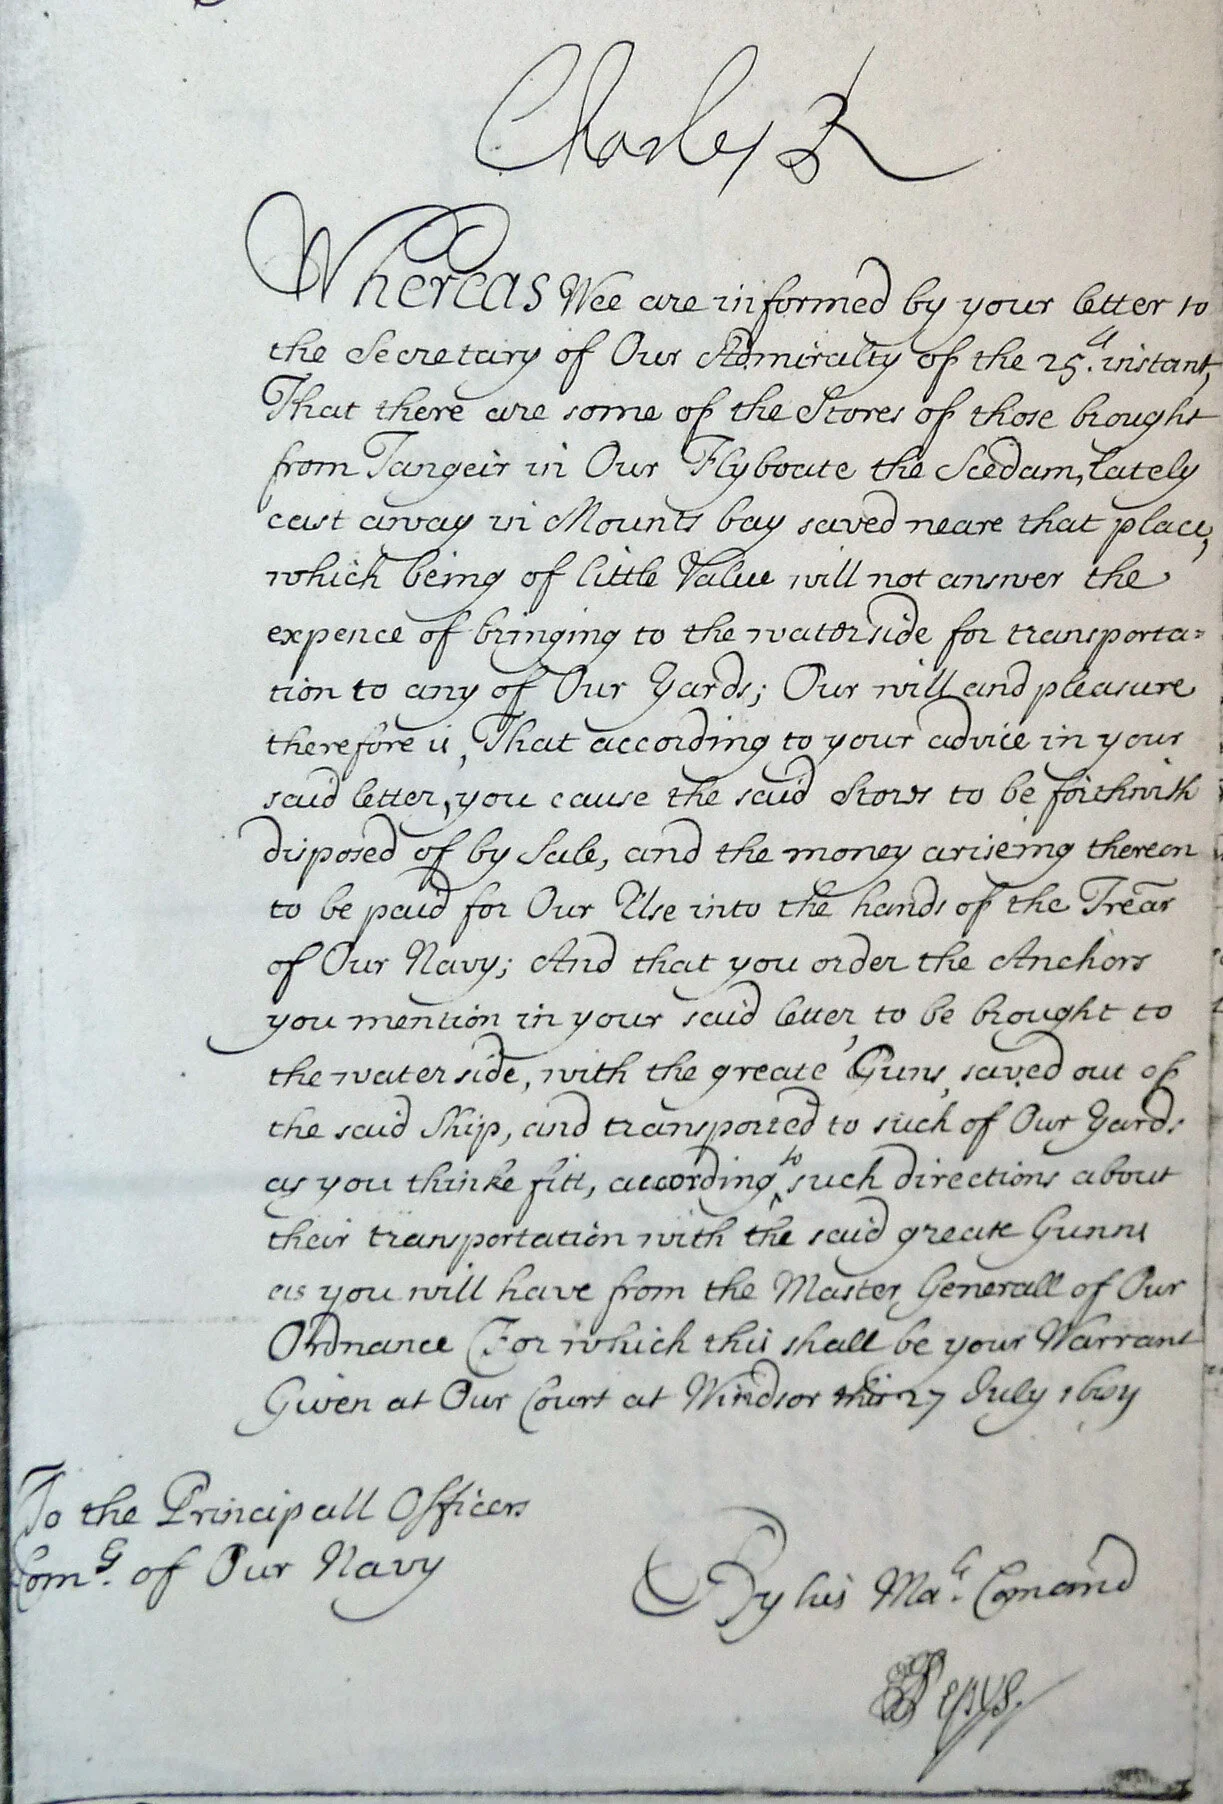 Charles R
Whereas Wee are informed by your letter to
the Secretary of Our Admiralty of the 25th. instant,
That there are some of the Stores of those brought
from Tangeir in Our Flyboate the Scedam, lately
cast away in Mounts bay saved neare that place,
which being of little Value will not answer the
expence of bringing to the waterside for transporta=
tion to any of Our Yards; Our will and pleasure
therefore is, That according to your advice in your
said letter, you cause the said Stores to be forthwith
disposed of by Sale, and the money ariseing thereon
to be paid for Our Use into the hands of the Trēar
of Our Navy; And that you order the Anchors
you mention in your said letter, to be brought to
the water side, with the greate Guns, saved out of
the said Ship, and transported to such of Our Yards
as you thinke fitt, according to such directions about
their transportation with the said greate Gunns
as you will have from the Master Generall of Our
Ordnance For which this shall be your Warrant
Given at Our Court at Windsor this 27 July
To the Principall Officers
Comrs. of Our Navy
By his Mats. Comānd
SPepys.